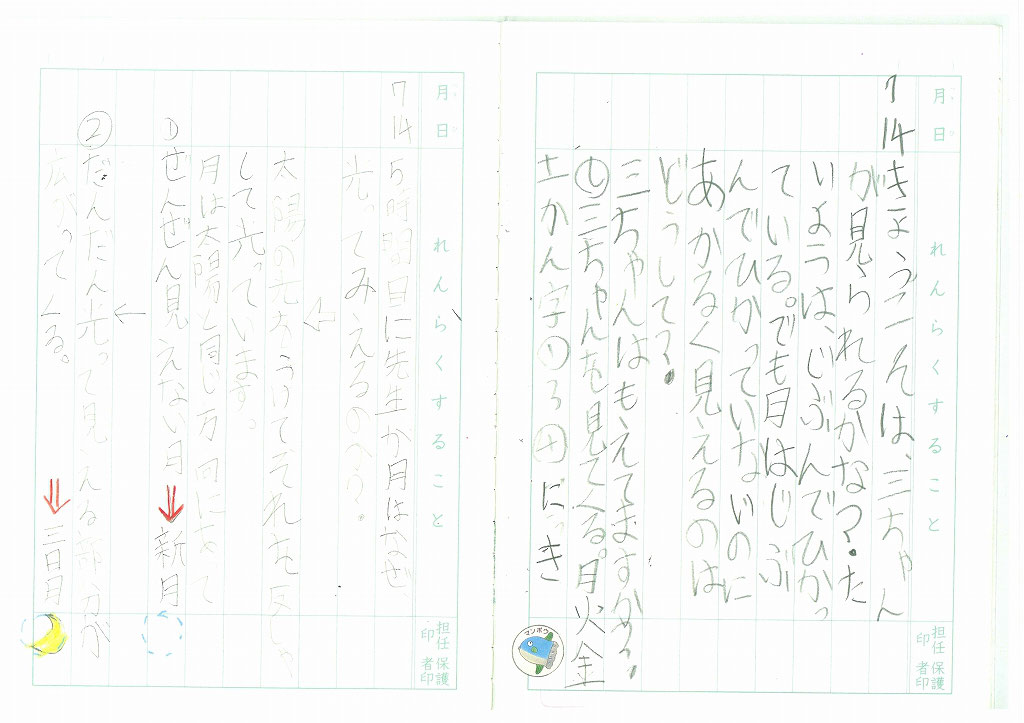 月 日 れんらくすること 担任印 保護者印
7 14 きょうこそは、三ちゃん
が見られるかな?。た
いようは、じぶんでひかっ
ている。でも月はじぶ
んでひかっていないのに
あかるく見えるのは
どうして?。
三ちゃんはもえてますか?。
三ちゃんを見てくる。月火金
かん字
にっき
マンボウ
月 日 れんらくすること 担任印 保護者印
7 14 5時間目に先生が月はなぜ
光ってみえるの?。
太陽の光をうけてそれを反しゃ
して光っています。
月は太陽と同じ方向にあって
① ぜんぜん見えない月 新月
② だんだん光って見える部分が
広がってくる。 三日月